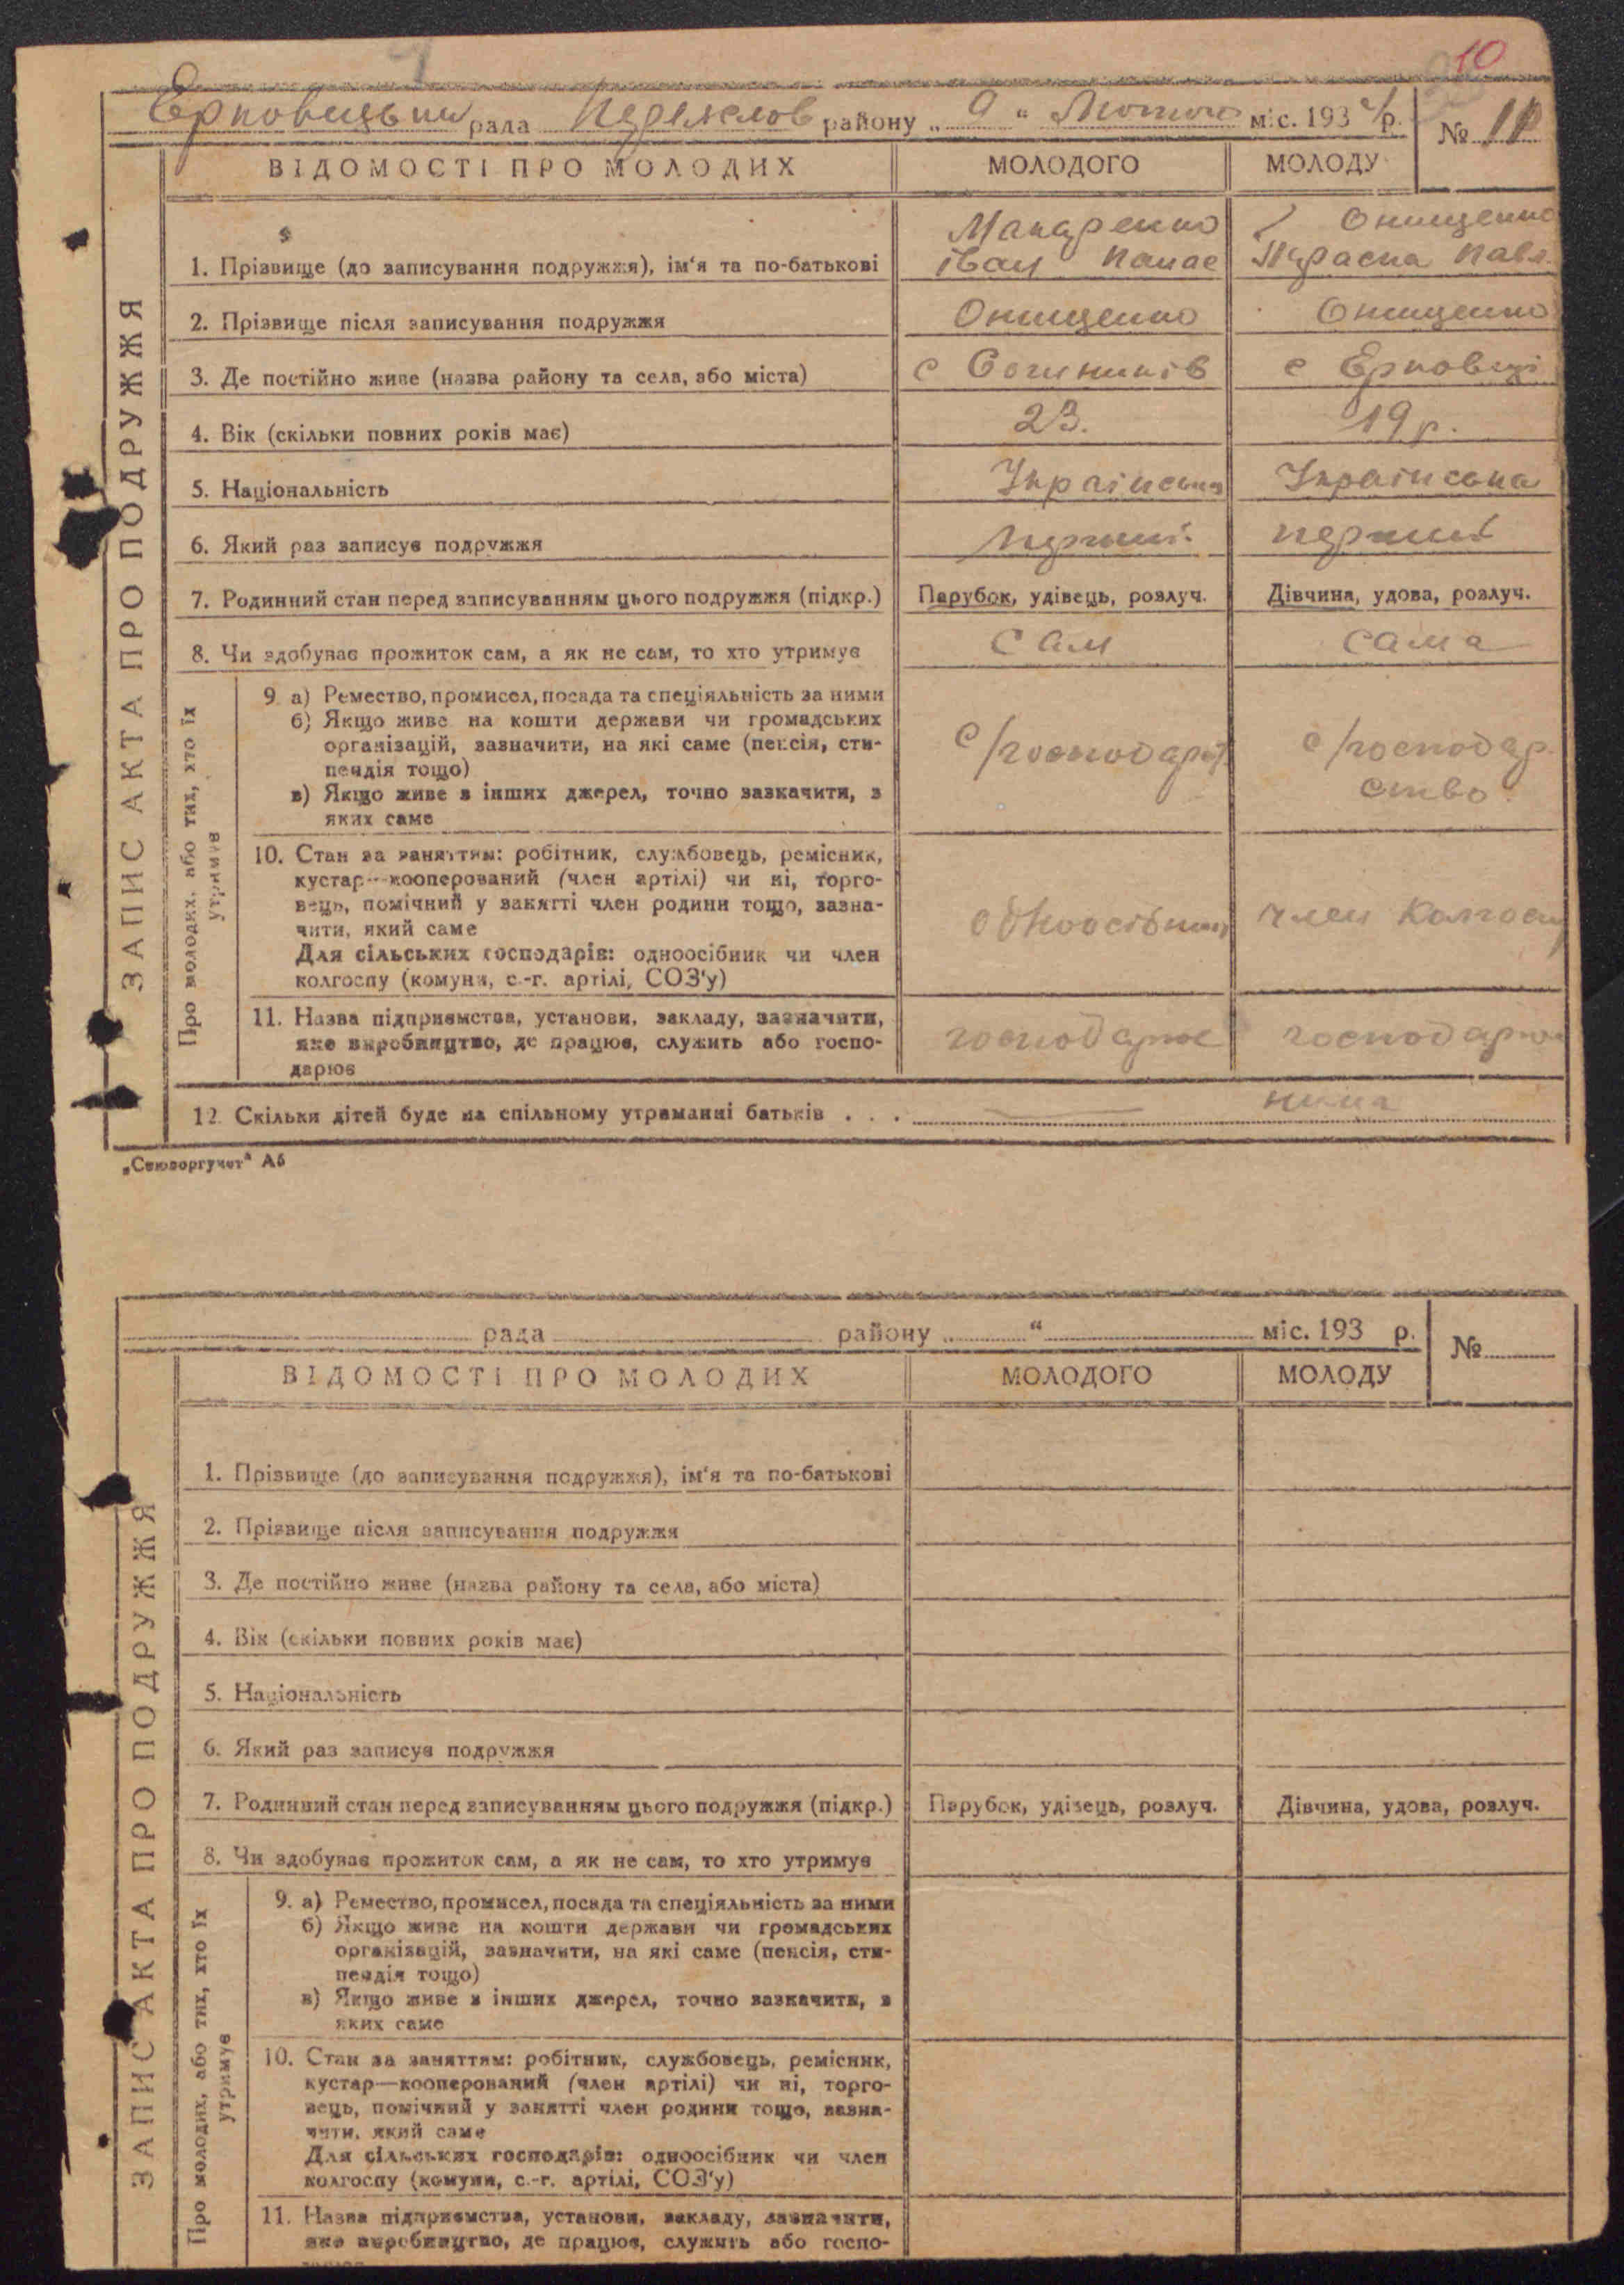 10
Ерковецька рада Переяслов району „ 9 “ Лютого міс. 1934 р. № 11
ВІДОМОСТІ ПРО МОЛОДИХ МОЛОДОГО МОЛОДУ
ЗАПИС АКТА ПРО ПОДРУЖЖЯ
Макаренко Онищенко
1. Прізвище (до записування подружжя), ім‘я та по-батькові іван Панас Параска Павл.
2. Прізвище після записування подружжя Онищенко Онищенко
3. Де постійно живе (назва району та села, або міста) с с Ерковці
4. Вік (скільки повних років має) 23. 19 р.
5. Національність Українська Українська
6. Який раз записує подружжя перший перший
7. Родинний стан перед записуванням цього подружжя (підкр.) Парубок, удівець, розлуч. Дівчина, удова, розлуч.
8. Чи здобуває прожиток сам, а як не сам, то хто утримує сам сама
Про молодих, або тих, хто їх
утримує
9. а) Ремество, промисел, посада та спеціяльність за ними
б) Якщо живе на кошти держави чи громадських
організацій, зазначити, на які саме (пенсія, сти-
пендія тощо)
в) Якщо живе з інших джерел, точно зазначити, з
яких саме
с/господар с/господар
ство
10. Стан за заняттям: робітник, службовець, ремісник,
кустар—кооперований (член артілі) чи ні, торго-
вець, помічний у занятті член родини тощо, зазна-
чити, який саме
Для сільських господарів: одноосібник чи член
колгоспу (комуни, с.-г. артілі, СОЗ‘у)
одноосібник член Колгосп
11. Назва підприємства, установи, закладу, зазначити,
яке виробництво, де працює, служить або госпо-
дарює
господарює господарює
12. Скільки дітей буде на спільному утриманні батьків . . . нима
„Союзоргучет“ А5
рада району „ “ міс. 193 р. №
ВІДОМОСТІ ПРО МОЛОДИХ МОЛОДОГО МОЛОДУ
ЗАПИС АКТА ПРО ПОДРУЖЖЯ
1. Прізвище (до записування подружжя), ім‘я та по-батькові
2. Прізвище після записування подружжя
3. Де постійно живе (назва району та села, або міста)
4. Вік (скільки повних років має)
5. Національність
6. Який раз записує подружжя
7. Родинний стан перед записуванням цього подружжя (підкр.) Парубок, удівець, розлуч. Дівчина, удова, розлуч.
8. Чи здобуває прожиток сам, а як не сам, то хто утримує
Про молодих, або тих, хто їх
утримує
9. а) Ремество, промисел, посада та спеціяльність за ними
б) Якщо живе на кошти держави чи громадських
організацій, зазначити, на які саме (пенсія, сти-
пендія тощо)
в) Якщо живе з інших джерел, точно зазначити, з
яких саме
10. Стан за заняттям: робітник, службовець, ремісник,
кустар—кооперований (член артілі) чи ні, торго-
вець, помічний у занятті член родини тощо, зазна-
чити, який саме
Для сільських господарів: одноосібник чи член
колгоспу (комуни, с.-г. артілі, СОЗ‘у)
11. Назва підприємства, установи, закладу, зазначити,
яке виробництво, де працює, служить або госпо-